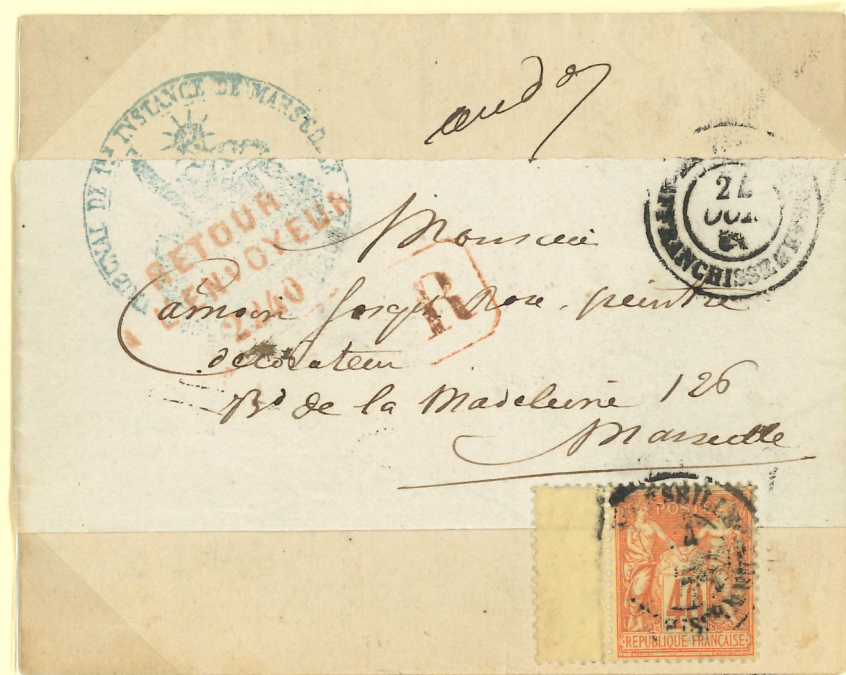 TRIBUNAL DE 1RE INSTANCE DE MARSEILLE
RETOUR
A L'ENVOYEUR
2240
R
24
AFFRANCHISSEMENTS
Monsieur
Camoin Joseph Rose, peintre
décorateur
Bd de la Madeleine 126
Marseille
MARSEILLE
POSTES
40
REPUBLIQUE FRANÇAISE